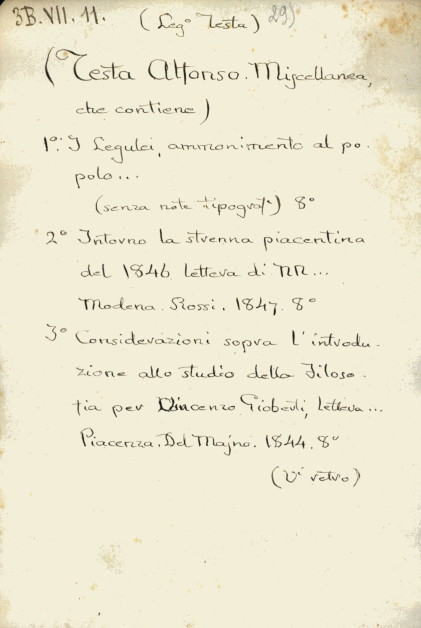 3B.VII.11. (Legº Testa) 29)
(Testa Alfonso. Miscellanea,
che contiene)
1º: I Legulei, ammonimento al po-
polo...
(senza note tipografe) 8º
2º Intorno la strenna piacentina
del 1846 lettera di NN...
Modena. Rossi. 1847. 8º
3º Considerazioni sopra l'introdu-
zione allo studio della Filoso-
fia per Vincenzo Gioberti, lettera...
Piacenza. Del Majno. 1844. 8º
(Vi retro)